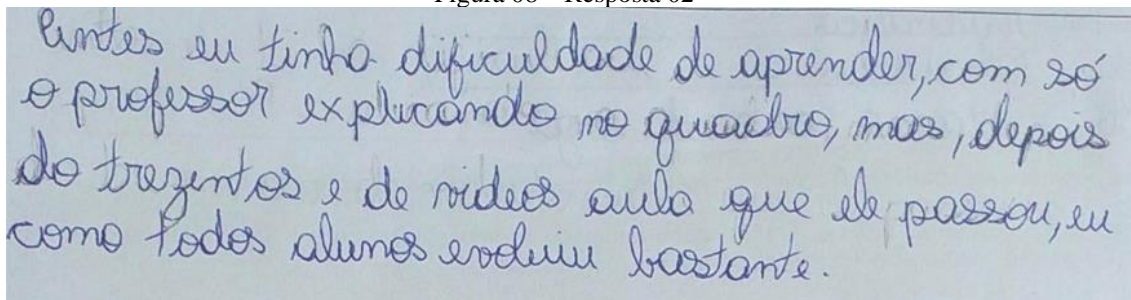 Antes eu tinha dificuldade de aprender, com só
o professor explicando no quadro, mas, depois
do trezentos e de videos aula que ele passou, eu
como todos alunos evoluiu bastante.